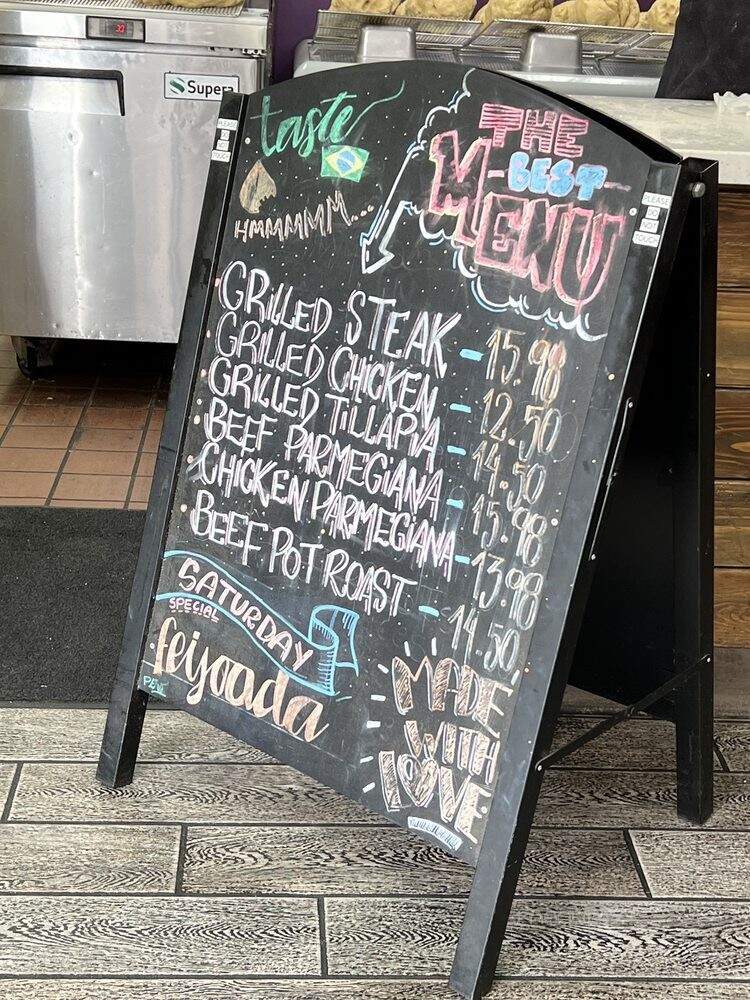 Supera
33
PLEASE
DO
NOT
TOUCH
taste
HMMMMMM...
THE
BEST
MENU
PLEASE
DO
NOT
TOUCH
GRILLED STEAK - 15.98
GRILLED CHICKEN - 12.50
GRILLED TILLAPIA - 14.50
BEEF PARMEGIANA - 15.98
CHICKEN PARMEGIANA - 13.98
BEEF POT ROAST - 14.50
SATURDAY
SPECIAL
feijoada
MADE
WITH
LOVE